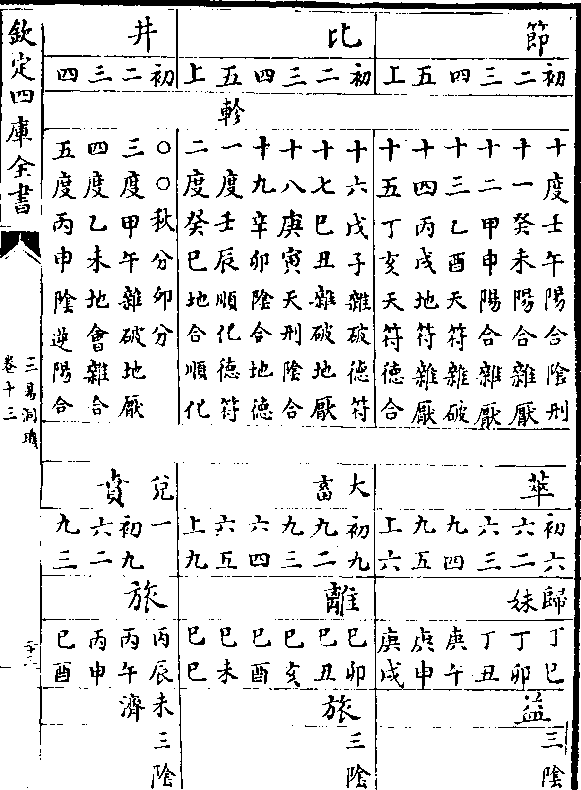 節
比
井
初 二 三 四 五 上
初 二 三 四 五 上
初 二 三 四
軫
十度壬午陽合陰刑
十一癸未陽合雜厭
十二甲申陽合雜厭
十三乙酉天符雜破
十四丙戌地符雜厭
十五丁亥天符德合
十六戊子雜破德符
十七己丑雜破地厭
十八庚寅天刑陰合
十九辛卯陰合地德
一度壬辰順化德符
二度癸巳地合順化
〇〇秋分卯分
三度甲午雜破地厭
四度乙未地會雜合
五度丙申陰逆陽合
萃
大畜
兌一
賁
初六 六二 六三 九四 九五 上六
初九 九二 九三 六四 六五 上九
初九 六二 九三
歸妹
離
旅
丁巳 丁卯 丁丑 庚午 庚申 庚戌
己卯 己丑 己亥 己酉 己未 己巳
丙辰 丙午 丙申 己酉
益 三陰
旅 三陰
未濟 三陰
欽定四庫全書
三易洞璣
卷十三